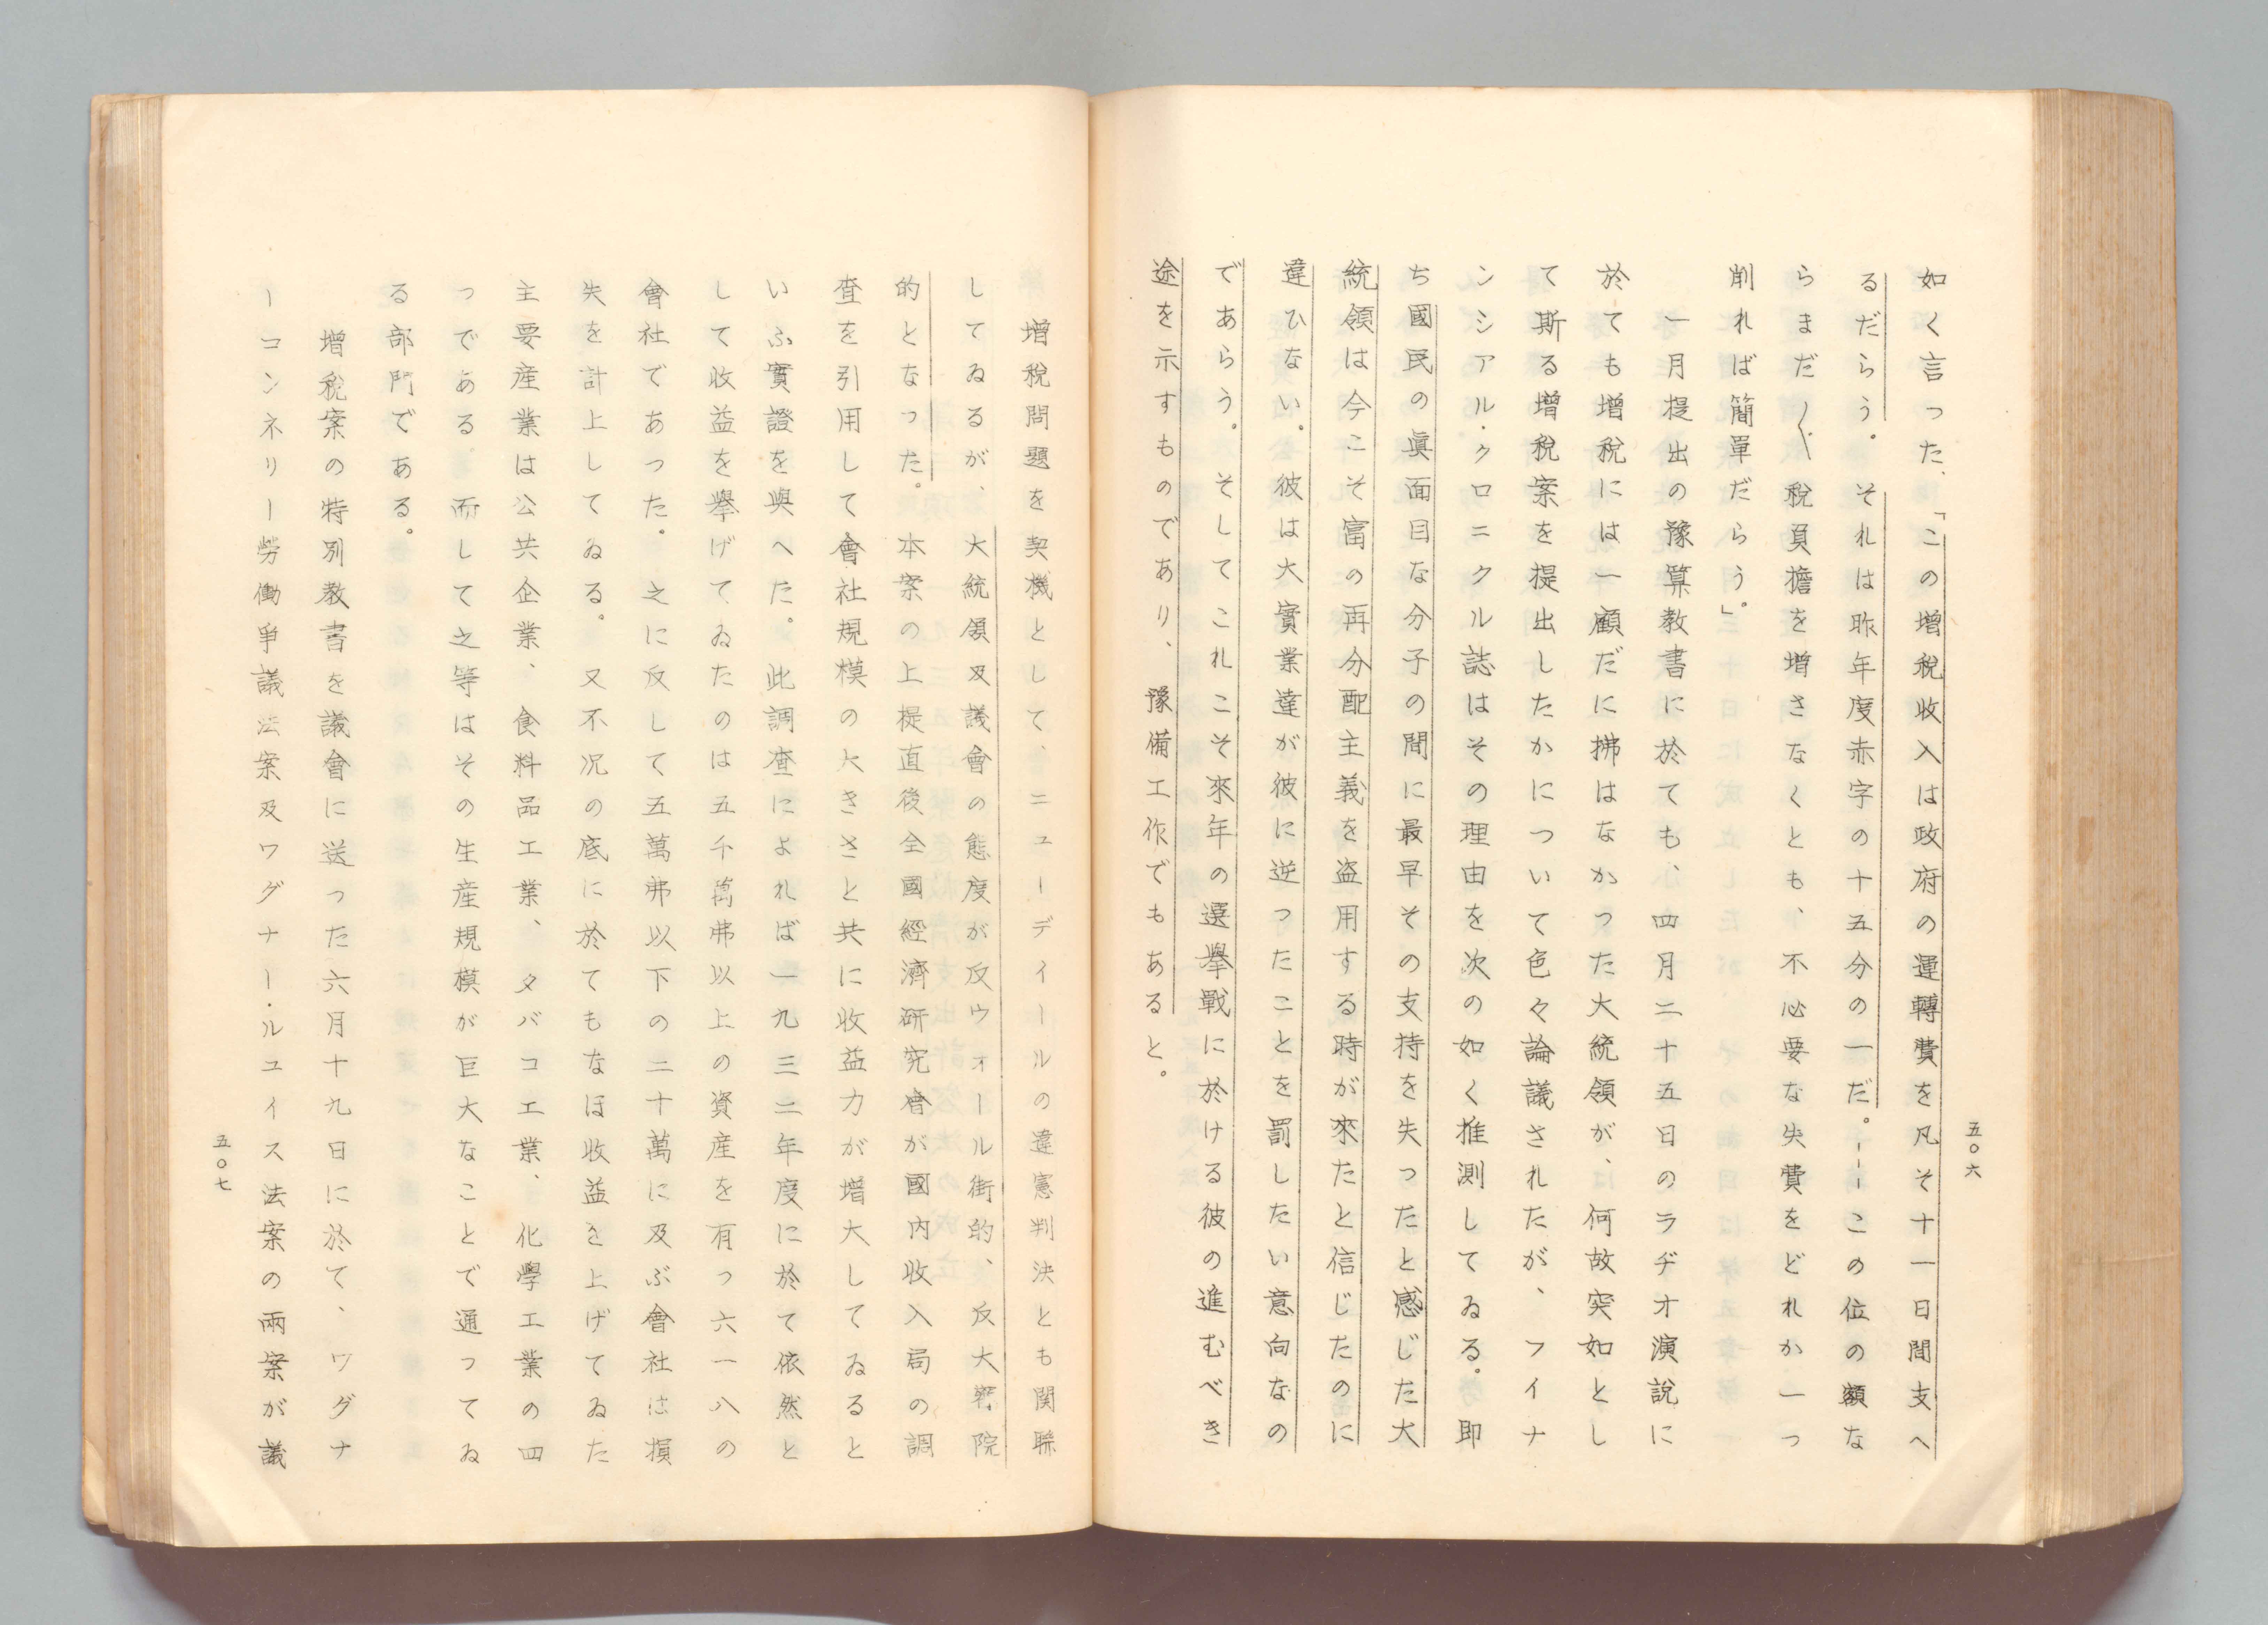 如く言った、「この增稅收入は政府の運轉費を凡そ十一日間支へ
るだらう。それは昨年度赤字の十五分の一だ。——この位の額な
らまだ〳〵稅負擔を增さなくとも、不必要な失費をどれか一つ
削れば簡單だらう」。
一月提出の豫算教書に於ても、四月二十五日のラヂオ演說に
於ても增稅には一顧だに拂はなかった大統領が、何故突如とし
て斯る增稅案を提出したかについて色々論議されたが、フイナ
ンシアル・クロニクル誌はその理由を次の如く推測してゐる。卽
ち國民の眞面目な分子の間に最早その支持を失ったと感じた大
統領は今こそ富の再分配主義を盜用する時が來たと信じたのに
違ひない。彼は大實業達が彼に逆ったことを罰したい意向なの
であらう。そしてこれこそ來年の選擧戰に於ける彼の進むべき
途を示すものであり、豫備工作でもあると。
五〇六
增稅問題を契機として、ニューデイールの違憲判決とも関聯
してゐるが、大統領及議會の態度が反ウォール街的、反大審院
的となった。本案の上提直後全國經濟研究會が國內收入局の調
査を引用して會社規模の大きさと共に收益力が增大してゐると
いふ實證を與へた。此調査によれば一九三二年度に於て依然と
して收益を擧げてゐたのは五千萬弗以上の資産を有つ六一八の
會社であった。之に反して五萬弗以下の二十萬に及ぶ會社は損
失を計上してゐる。又不況の底に於てもなほ收益を上げてゐた
主要産業は公共企業、食料品工業、タバコ工業、化學工業の四
つである。而して之等はその生産規模が巨大なことで通ってゐ
る部門である。
增稅案の特別教書を議會に送った六月十九日に於て、ワグナ
ーコンネリー勞働爭議法案及ワグナー・ルユイス法案の兩案が議
五〇七